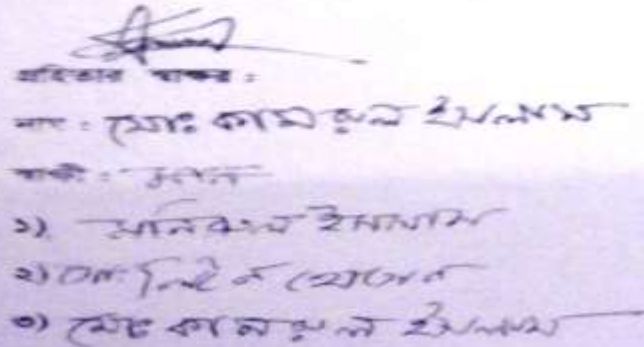 গ্রহিতার স্বাক্ষর :
নাম : মোঃ কামরুল ইসলাম
স্বাক্ষী :
১) মনিরুল ইসলাম
২) হোসেন
৩) মোঃ কামরুল ইসলাম